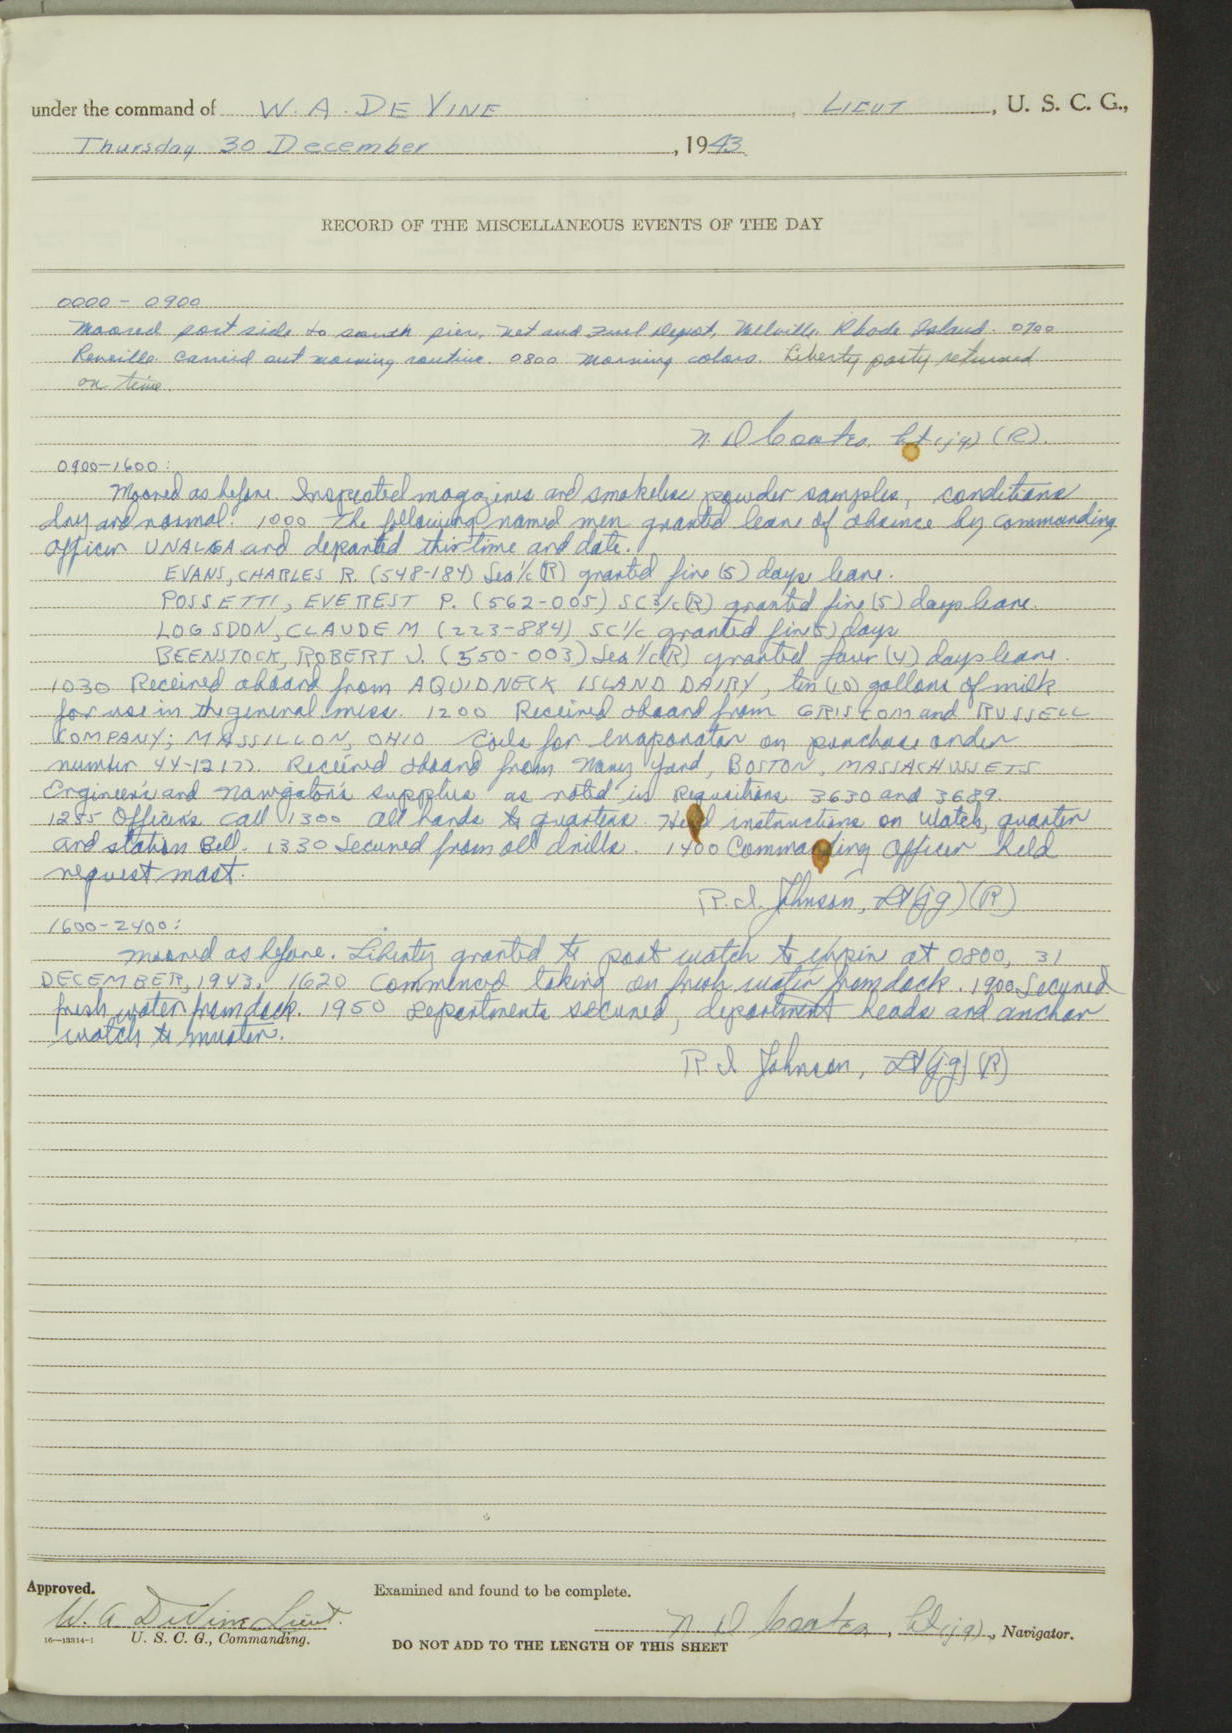 under the command of W. A. DE VINE, LIEUT, U. S. C. G.,
Thursday 30 December, 1943
RECORD OF THE MISCELLANEOUS EVENTS OF THE DAY
0000 - 0900
Moored port side to south pier, Net and Fuel Depot, Melville, Rhode Island. 0700
Reveille. Carried out morning routine. 0800 Morning colors. Liberty party returned
on time.
N. D. Coates, Lt (jg) (R).
0900-1600:
Moored as before. Inspected magazines and smokeless powder samples, conditions
dry and normal. 1000 The following named men granted leave of absence by commanding
officer UNALGA and departed this time and date.
EVANS, CHARLES R. (548-184) Sea 1/c (R) granted five (5) days leave.
POSSETTI, EVEREST P. (562-005) SC 3/c (R) granted five (5) days leave.
LOGSDON, CLAUDE M (223-884) SC 1/c granted five (5) days
BEENSTOCK, ROBERT J. (550-003) Sea 1/c (R) granted four (4) days leave.
1030 Received aboard from AQUIDNECK ISLAND DAIRY, ten (10) gallons of milk
for use in the general mess. 1200 Received aboard from GRISCOM and RUSSELL
COMPANY; MASSILLON, OHIO Coils for evaporator on purchase order
number 44-12177. Received aboard from Navy Yard, BOSTON, MASSACHUSSETS
Engineer's and Navigator's supplies as noted in Requisitions 3630 and 3689.
1255 Officers call 1300 All hands to quarters. Held instructions on Watch, quarter
and station Bill. 1330 Secured from all drills. 1400 Commanding Officer held
request mast.
R. I. Johnson, Lt (jg) (R)
1600-2400:
Moored as before. Liberty granted to port watch to expire at 0800, 31
DECEMBER, 1943. 1620 Commenced taking on fresh water from dock. 1900 Secured
fresh water from dock. 1950 Departments secured, department heads and anchor
watch to muster.
R. I. Johnson, Lt (jg) (R)
Approved.
Examined and found to be complete.
W. A. DeVine Lieut.
N D Coates, Lt (jg), Navigator.
16—13314-1 U. S. C. G., Commanding.
DO NOT ADD TO THE LENGTH OF THIS SHEET